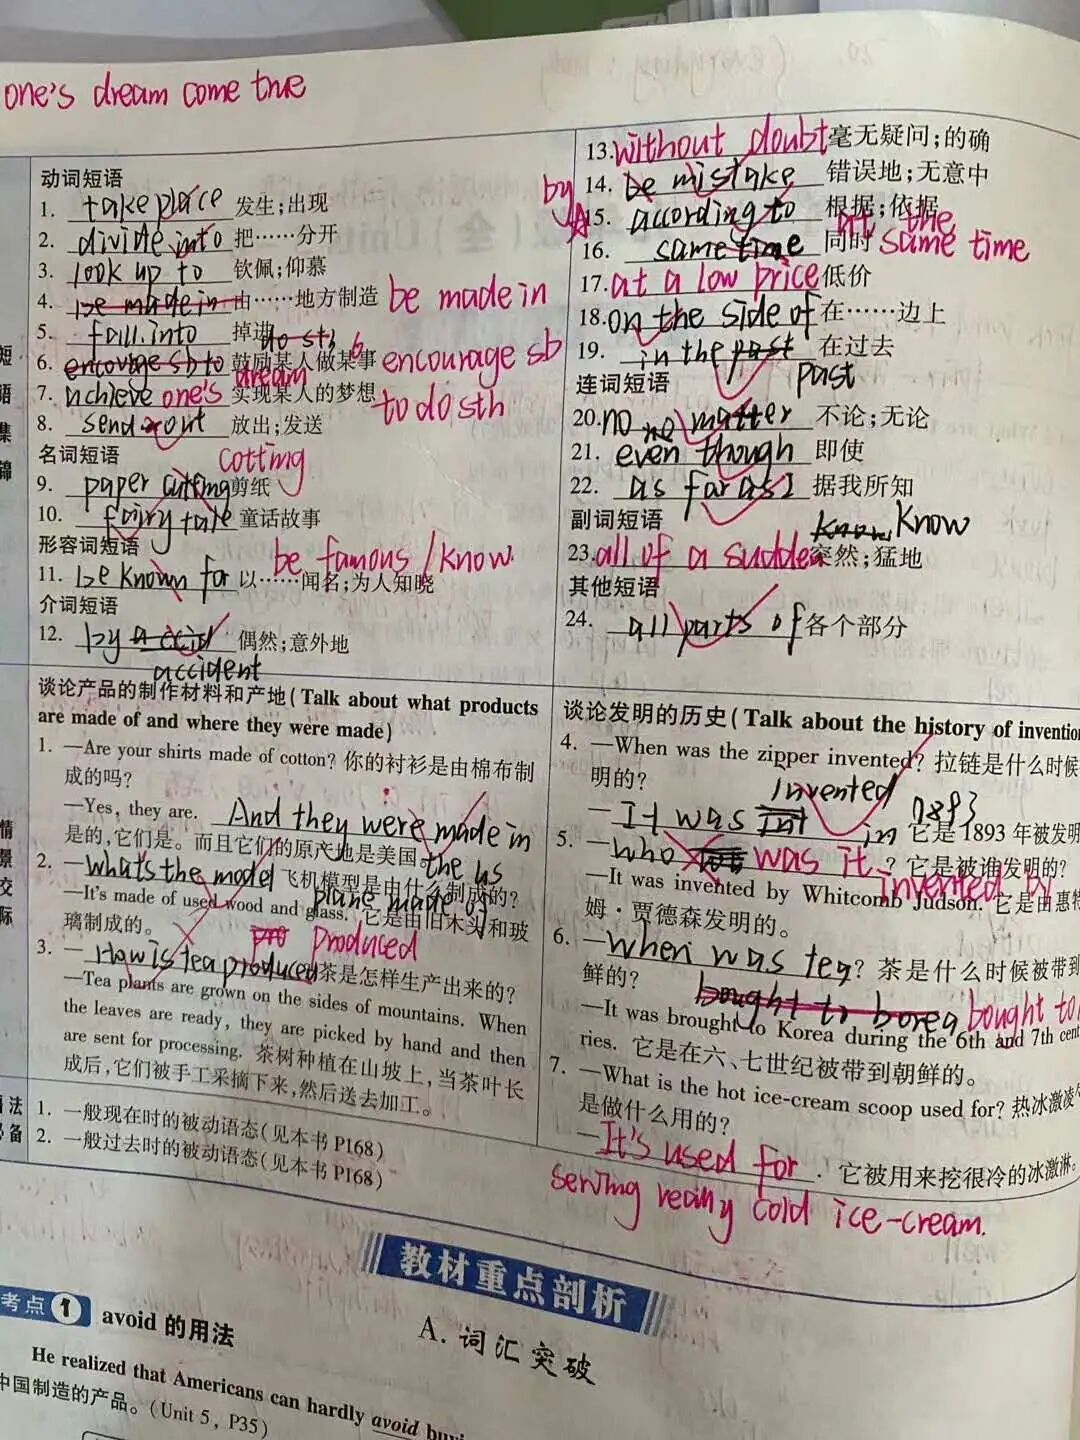 one's dream come true
动词短语
1. take place 发生;出现
2. divide into 把……分开
3. look up to 钦佩;仰慕
4. be made in 由……地方制造 be made in
5. fall into 掉进
do sth
6. encourage sb to 鼓励某人做某事 encourage sb
to do sth
dream
7. achieve one's 实现某人的梦想
8. send out 放出;发送
名词短语
cotting
9. paper cutting 剪纸
10. fairy tale 童话故事
形容词短语
be famous / know
11. be known for 以……闻名;为人知晓
介词短语
12. by accid 偶然;意外地
accident
13. without doubt 毫无疑问;的确
by
14. be mistake 错误地;无意中
15. according to 根据;依据
at the
16. same time 同时 same time
17. at a low price 低价
18. on the side of 在……边上
19. in the past 在过去
past
连词短语
20. no matter 不论;无论
21. even though 即使
22. as far as I 据我所知
know know
副词短语
23. all of a sudden 突然;猛地
其他短语
24. all parts of 各个部分
短
语
集
锦
谈论产品的制作材料和产地(Talk about what products
are made of and where they were made)
1. —Are your shirts made of cotton? 你的衬衫是由棉布制
成的吗?
—Yes, they are. And they were made in
是的,它们是。而且它们的原产地是美国。 the us
2. —what's the model 飞机模型是由什么制成的?
plane made of
—It's made of used wood and glass. 它是由旧木头和玻
璃制成的。
produced
3. —How is tea produced 茶是怎样生产出来的?
—Tea plants are grown on the sides of mountains. When
the leaves are ready, they are picked by hand and then
are sent for processing. 茶树种植在山坡上,当茶叶长
成后,它们被手工采摘下来,然后送去加工。
情
景
交
际
谈论发明的历史(Talk about the history of invention
4. —When was the zipper invented? 拉链是什么时候
明的?
invented 1893
—It was in 它是 1893 年被发明
5. —who was it ? 它是被谁发明的?
invented by
—It was invented by Whitcomb Judson. 它是由惠特
姆·贾德森发明的。
6. —when was tea ? 茶是什么时候被带到
鲜的? bought to korea bought to
—It was brought to Korea during the 6th and 7th cent
ries. 它是在六、七世纪被带到朝鲜的。
7. —What is the hot ice-cream scoop used for? 热冰激凌勺
是做什么用的?
—It's used for . 它被用来挖很冷的冰激淋。
serving really cold ice-cream.
语法
必备
1. 一般现在时的被动语态(见本书 P168)
2. 一般过去时的被动语态(见本书 P168)
教材重点剖析
A. 词汇突破
考点 1 avoid 的用法
He realized that Americans can hardly avoid buy
中国制造的产品。(Unit 5, P35)